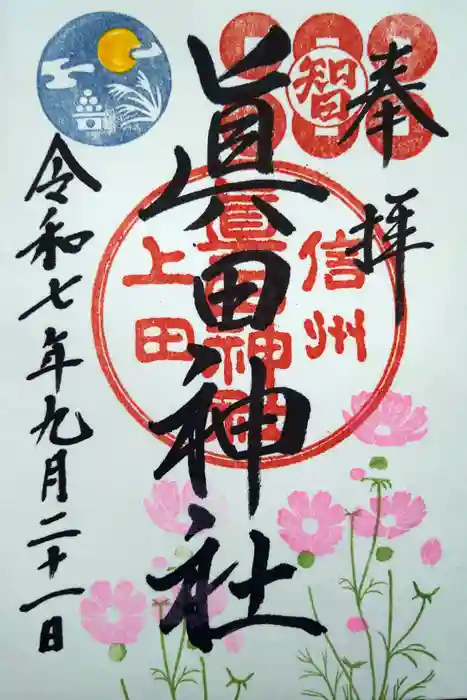 奉拝
智
眞田神社
信州
眞田神社
上田
令和七年九月二十一日